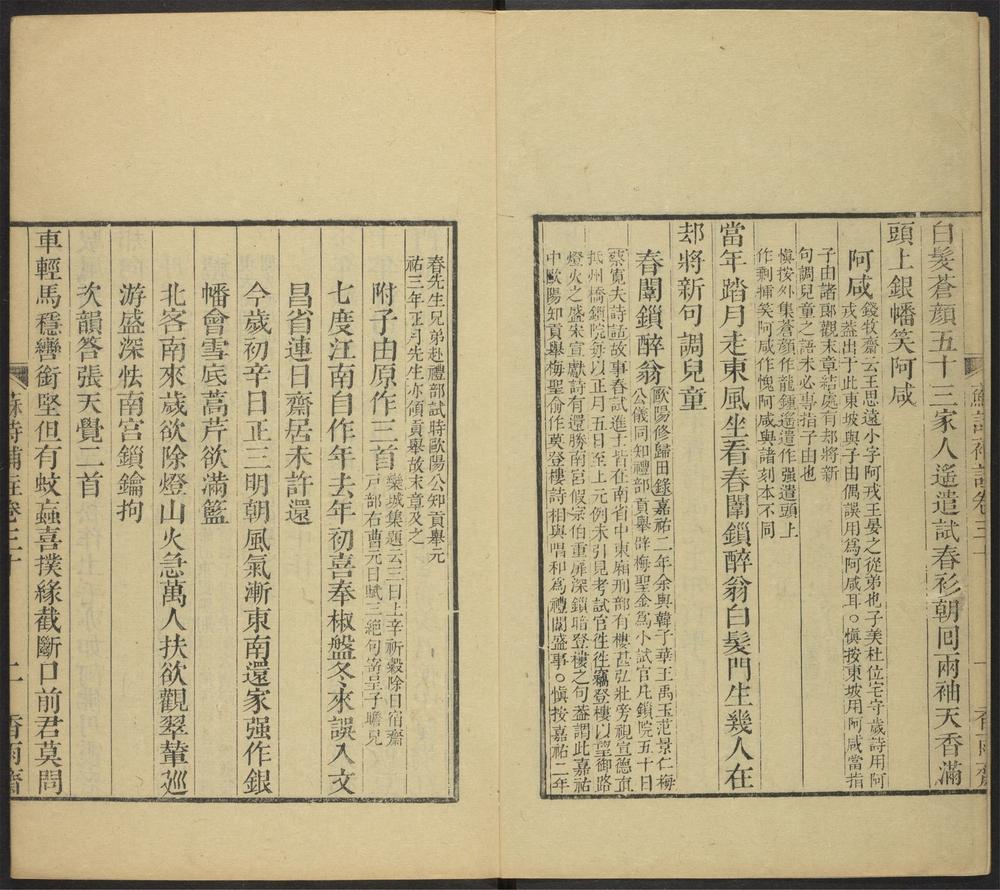 白髮蒼顏五十三家人遙遣試春衫朝回兩袖天香滿
頭上銀幡笑阿咸
阿咸
錢牧齋云王思遠小字阿戎王晏之從弟也子美杜位宅守歲詩用阿
戎葢出于此東坡與子由偶誤用爲阿咸耳○愼按東坡用阿咸當指
子由諸郎觀末章結處有却將新
句調兒童之語未必專指子由也
愼按外集蒼顏作龍鍾遙遣作强遣頭上
作剩捕笑阿咸作愧阿咸與諸刻本不同
當年踏月走東風坐看春闈鎖醉翁白髮門生幾人在
却將新句調兒童
春闈鎖醉翁
歐陽修歸田錄嘉祐二年余與韓子華王禹玉范景仁梅
公儀同知禮部貢舉辟梅聖俞爲小試官凡鎖院五十日
蔡寬夫詩話故事春試進士皆在南省中東廂刑部有樓甚弘壯旁視宣德直
抵州橋鎖院每以正月五日至上元例未引見考試官徃徃竊登樓以望御路
燈火之盛宋宣獻詩有還勝南宮假宗伯重扉深鎖暗登樓之句葢謂此嘉祐
中歐陽知貢舉梅聖俞作莫登樓詩相與唱和爲禮闈盛事○愼按嘉祐二年
蘇詩補註卷三十
一
香雨齋
春先生兄弟赴禮部試時歐陽公知貢舉元
祐三年正月先生亦領貢舉故末章及之
附子由原作三首
欒城集題云三日上辛祈穀除日宿齋
戸部右曹元日賦三絕句寄呈子瞻兄
七度江南自作年去年初喜奉椒盤冬來誤入文
昌省連日齋居未許還
今歲初辛日正三明朝風氣漸東南還家强作銀
幡會雪底蒿芹欲滿籃
北客南來歲欲除燈山火急萬人扶欲觀翠輦巡
游盛深怯南宮鎖鑰拘
次韻答張天覺二首
車輕馬穩轡銜堅但有蚊䖟喜撲緣截斷口前君莫問
蘇詩補註卷三十
二
香雨齋